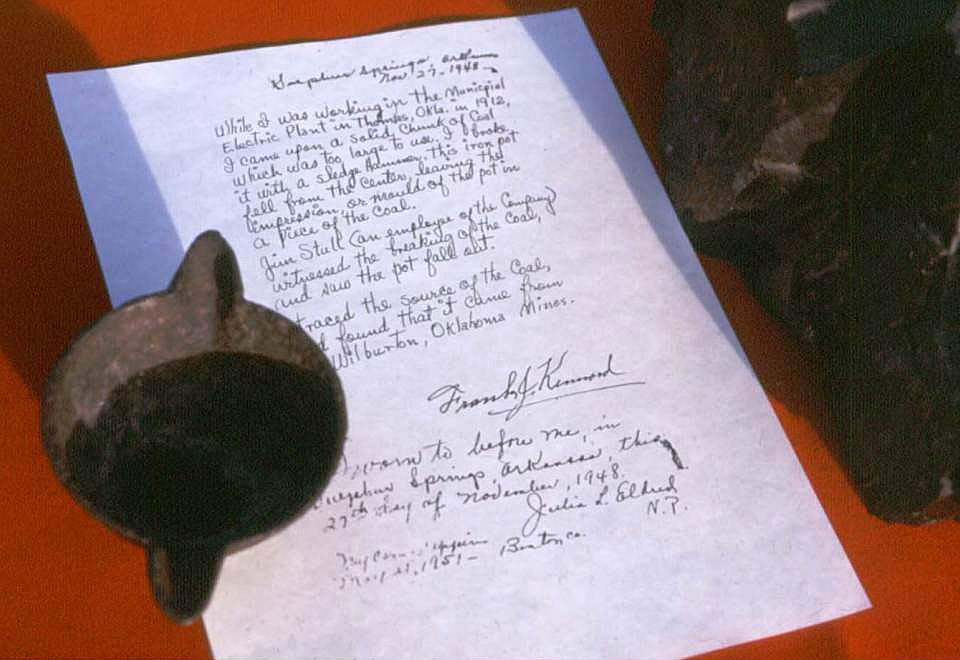 Sulphur Springs, Arkansas
Nov. 27, 1948
While I was working in the Municipial
Electric Plant in Thomas, Okla. in 1912,
I came upon a solid chunk of Coal
which was too large to use. I broke
it with a sledge hammer. This iron pot
fell from the center, leaving the
impression or mould of the pot in
a piece of the coal.
Jim Stull (an employe of the Company)
witnessed the breaking of the coal,
and saw the pot fall out.
traced the source of the Coal,
found that it came from
Wilburton, Oklahoma Mines.
Frank J. Kennard
Sworn to before me, in
Sulphur Springs, Arkansas, this
27th day of November, 1948.
Julia L. Eldred
N.P.
My Com. expires
1951 – Benton Co.